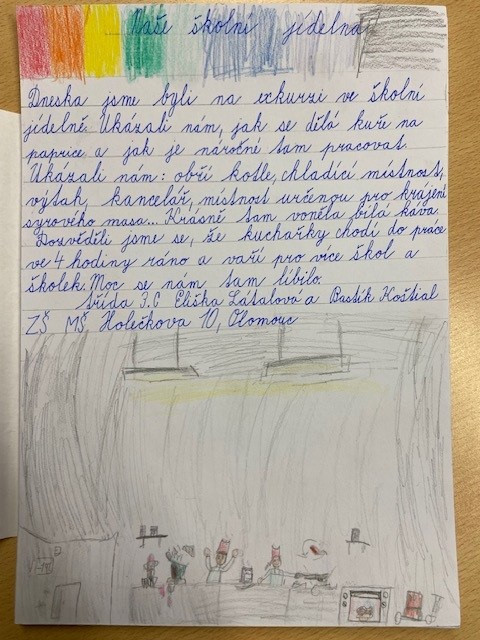 Naše školní jídelna
Dneska jsme byli na exkurzi ve školní
jídelně. Ukázali nám, jak se dělá kuře na
paprice a jak je náročné tam pracovat.
Ukázali nám: obří kotle, chladící místnost,
výtah, kancelář, místnost určenou pro krájení
syrového masa... Krásně tam voněla bílá káva.
Dozvěděli jsme se, že kuchařky chodí do práce
ve 4 hodiny ráno a vaří pro více škol a
školek. Moc se nám tam líbilo.
třída 3.C Eliška Látalová a Bastík Koštial
ZŠ MŠ Holečkova 10, Olomouc